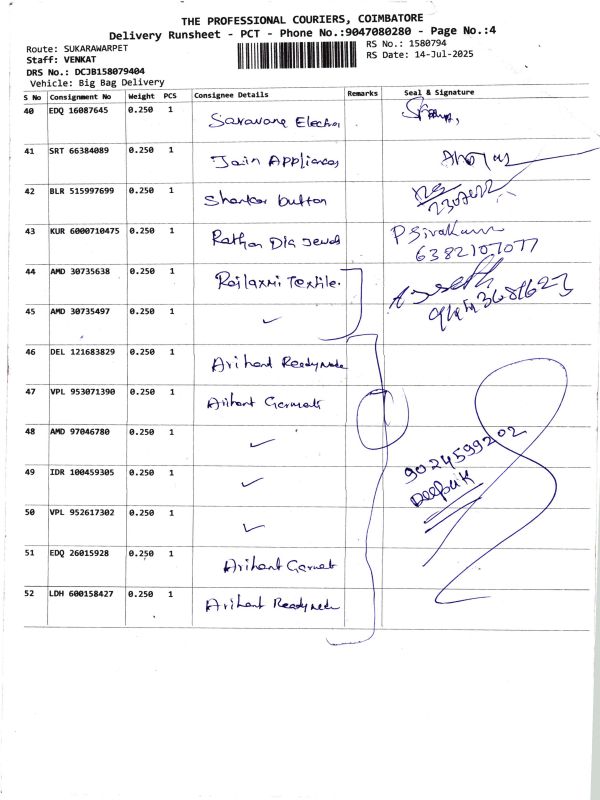 THE PROFESSIONAL COURIERS, COIMBATORE
Delivery Runsheet - PCT - Phone No.:9047080280 - Page No.:4
Route: SUKARAWARPET
RS No.: 1580794
Staff: VENKAT
RS Date: 14-Jul-2025
DRS No.: DCJB158079404
Vehicle: Big Bag Delivery
S No Consignment No Weight PCS Consignee Details Remarks Seal & Signature
40 EDQ 16087645 0.250 1 Saravana
41 SRT 66384089 0.250 1 Jain Appliances
42 BLR 515997699 0.250 1 Shankar button
43 KUR 6000710475 0.250 1 Rathan Dia P Sivakum
6382107077
44 AMD 30735638 0.250 1 Textile.
45 AMD 30735497 0.250 1 ✓
46 DEL 121683829 0.250 1 Arihant Readymade
47 VPL 953071390 0.250 1 Arihant
48 AMD 97046780 0.250 1 ✓
9024599202
49 IDR 100459305 0.250 1 ✓
Deepak
50 VPL 952617302 0.250 1 ✓
51 EDQ 26015928 0.250 1 Arihant
52 LDH 600158427 0.250 1 Arihant Readymade